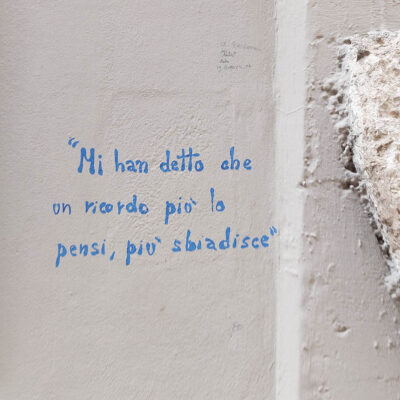 "Mi han detto che
un ricordo più lo
pensi, più sbiadisce"